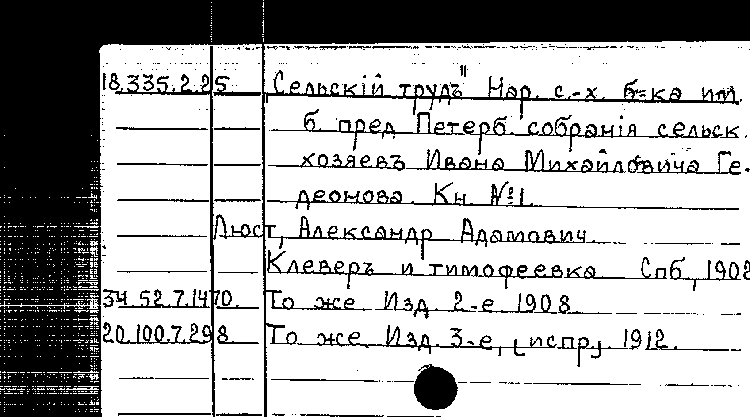 18.335.2.25 „Сельскій трудъ" Нар. с.-х. б-ка им.
б. пред Петерб. собранія сельск.
хозяевъ Ивана Михайловича Ге-
деонова. Кн. №1.
Люст, Александр Адамович.
Клеверъ и тимофеевка. Спб, 1902
34.52.7.1470. То же. Изд. 2-е 1908.
20.100.7.298 То же. Изд. 3-е, [испр] 1912.